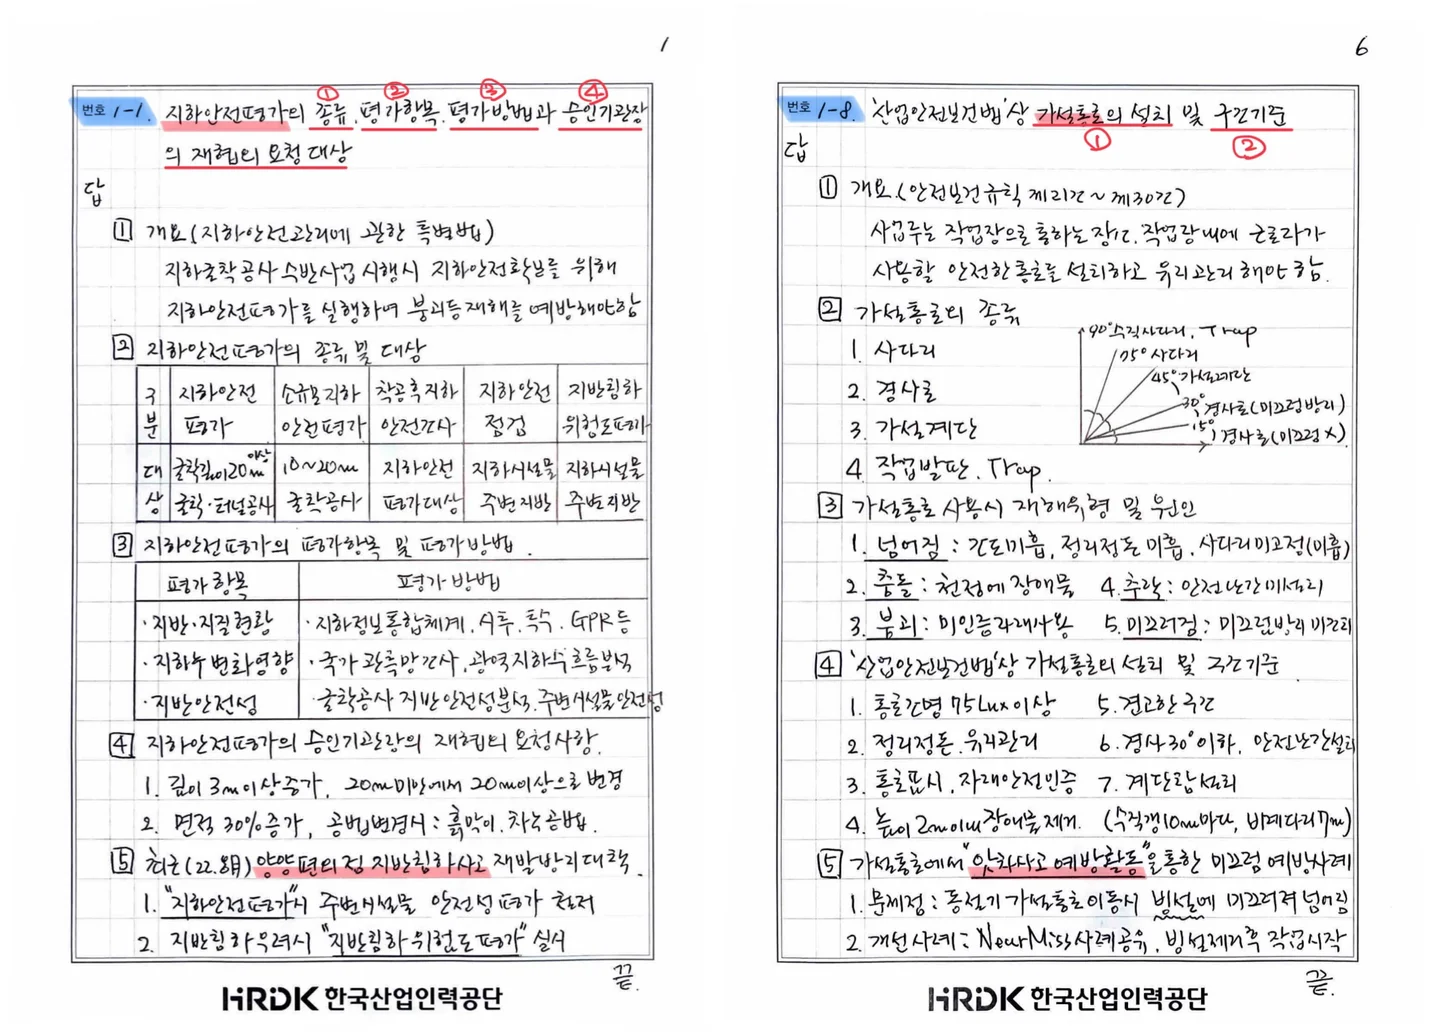 1
① ② ③ ④
번호 1-1. 지하안전평가의 종류, 평가항목, 평가방법과 승인기관장
의 재협의 요청 대상
답
1 개요 (지하안전관리에 관한 특별법)
지하굴착공사 수반사업 시행시 지하안전확보를 위해
지하안전평가를 실행하여 붕괴등 재해를 예방해야함
2 지하안전평가의 종류 및 대상
구분 지하안전평가 소규모지하안전평가 착공후지하안전조사 지하안전점검 지반침하위험도평가
대상 굴착깊이20m이상 굴착·터널공사 10~20m 굴착공사 지하안전평가대상 지하시설물 주변지반 지하시설물 주변지반
3 지하안전평가의 평가항목 및 평가방법.
평가항목 평가방법
·지반·지질현황 ·지하정보통합체계, 시추, 투수, GPR 등
·지하수변화영향 ·국가관측망조사, 광역지하수흐름분석
·지반안전성 ·굴착공사 지반안전성분석, 주변시설물안전성
4 지하안전평가의 승인기관장의 재협의 요청사항.
1. 깊이 3m이상증가, 20m미만에서 20m이상으로 변경
2. 면적 30%증가, 공법변경시 : 흙막이, 차수공법.
5 최근(22.8月) 양양 편의점 지반침하사고 재발방지대책.
1. "지하안전평가"시 주변시설물 안전성평가 철저
2. 지반침하우려시 "지반침하위험도평가" 실시
끝.
HRDK 한국산업인력공단
6
번호 1-8. '산업안전보건법'상 가설통로의 설치 및 구조기준
① ②
답
1 개요.(안전보건규칙 제21조~제30조)
사업주는 작업장으로 통하는 장소, 작업장내에 근로자가
사용할 안전한통로를 설치하고 유지관리 해야 함.
2 가설통로의 종류
1. 사다리
2. 경사로
3. 가설계단
4. 작업발판, Trap.
90° 수직사다리, Trap
75° 사다리
45° 가설계단
30° 경사로(미끄럼방지)
15° 경사로(미끄럼X)
3 가설통로 사용시 재해유형 및 원인
1. 넘어짐 : 조도미흡, 정리정돈 미흡, 사다리미고정(미흡)
2. 충돌 : 천정에 장애물 4. 추락 : 안전난간미설치
3. 붕괴 : 미인증자재사용 5. 미끄러짐 : 미끄럼방지미조치
4 '산업안전보건법'상 가설통로의 설치 및 구조기준
1. 통로조명 75Lux이상 5. 견고한구조
2. 정리정돈, 유지관리 6. 경사30°이하, 안전난간설치
3. 통로표시, 자재안전인증 7. 계단참설치
4. 높이2m이내 장애물제거. (수직갱10m마다, 비계다리7m)
5 가설통로에서 "앗차사고 예방활동"을 통한 미끄럼 예방사례
1. 문제점 : 동절기 가설통로이동시 빙설에 미끄러져 넘어짐
2. 개선사례 : Near Miss사례공유, 빙설제거후 작업시작
끝.
HRDK 한국산업인력공단